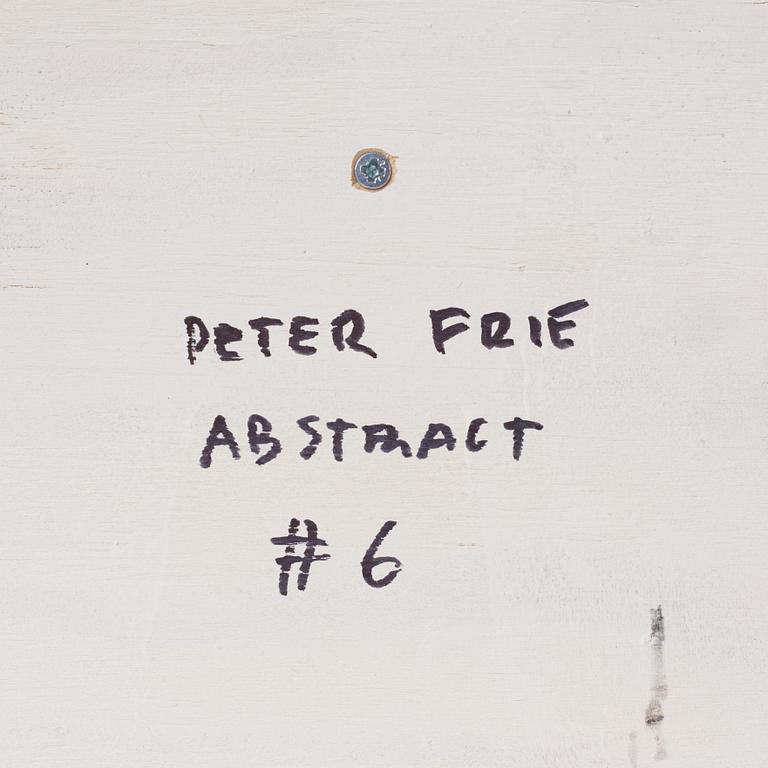 PETER FRIE
ABSTRACT
# 6